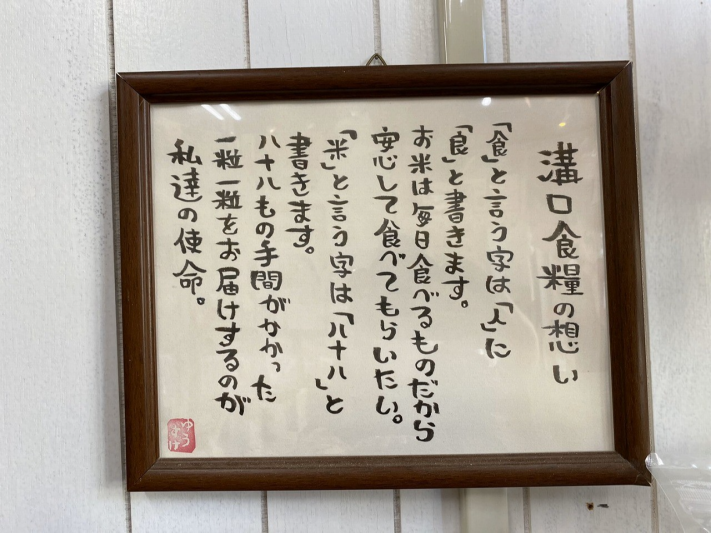 溝口食糧の想い
「食」と言う字は「人」に
「良」と書きます。
お米は毎日食べるものだから
安心して食べてもらいたい。
「米」と言う字は「八十八」と
書きます。
八十八もの手間がかかった
一粒一粒をお届けするのが
私達の使命。